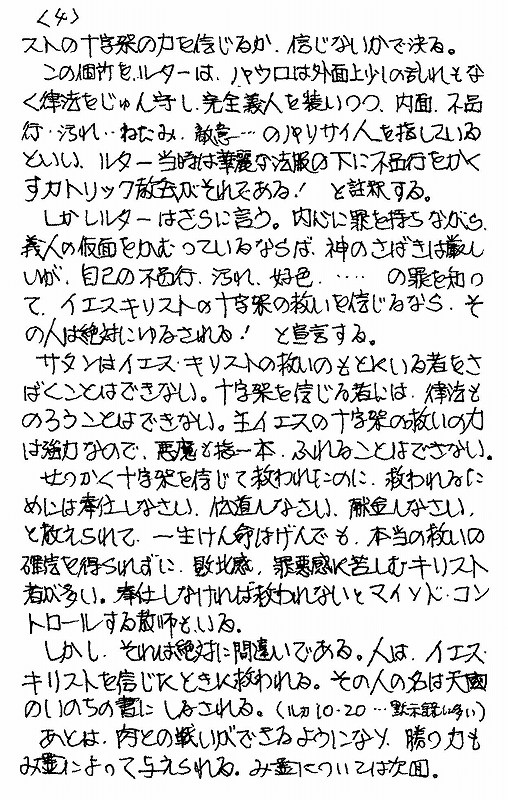 <4>
ストの十字架の力を信じるか、信じないかで決る。
この個所を、ルターは、パウロは外面上少しの乱れもな
く律法をじゅん守し、完全義人を装いつつ、内面、不品
行・汚れ・ねたみ、敵意…のパリサイ人を指している
といい、ルター当時は華麗な法服の下に不品行をかく
すカトリック教会がそれである！ と註釈する。
しかしルターはさらに言う。内心に罪を持ちながら、
義人の仮面をかむっているならば、神のさばきは厳し
いが、自己の不品行、汚れ、好色、‥‥ の罪を知っ
て、イエスキリストの十字架の救いを信じるなら、そ
の人は絶対にゆるされる！ と宣言する。
サタンはイエス・キリストの救いのもとにいる者をさ
ばくことはできない。十字架を信じる者には、律法も
のろうことはできない。主イエスの十字架の救いの力
は強力なので、悪魔も指一本、ふれることはできない。
せっかく十字架を信じて救われたのに、救われるた
めには奉仕しなさい、伝道しなさい、献金しなさい、
と教えられて、一生けん命はげんでも、本当の救いの
確信を得られずに、敗北感、罪悪感に苦しむキリスト
者が多い。奉仕しなければ救われないとマインド・コン
トロールする教師もいる。
しかし、それは絶対に間違いである。人は、イエス・
キリストを信じたときに救われる。その人の名は天国
のいのちの書にしるされる。(ルカ10・20…黙示録に多い)
あとは、肉との戦いができるようになり、勝つ力も
み霊によって与えられる。み霊については次回。